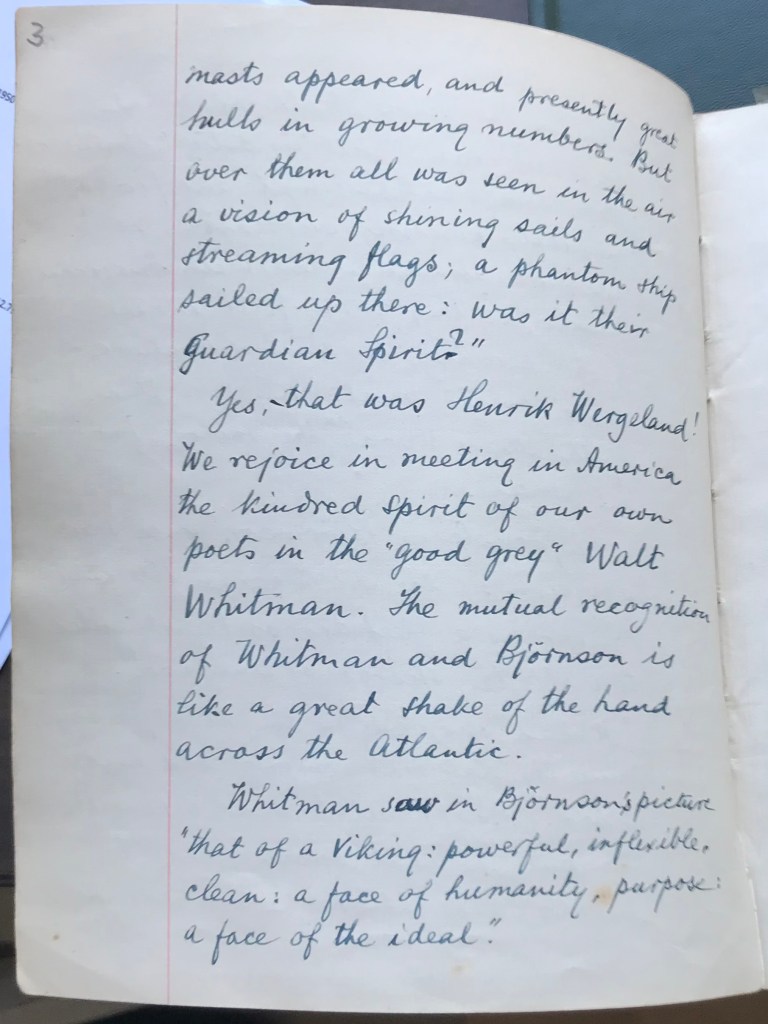 3
masts appeared, and presently great
hulls in growing numbers. But
over them all was seen in the air
a vision of shining sails and
streaming flags; a phantom ship
sailed up there: was it their
Guardian Spirit?"
Yes, that was Henrik Wergeland!
We rejoice in meeting in America
the kindred spirit of our own
poets in the "good grey" Walt
Whitman. The mutual recognition
of Whitman and Björnson is
like a great shake of the hand
across the Atlantic.
Whitman saw in Björnson's picture
"that of a Viking: powerful, inflexible,
clean: a face of humanity, purpose:
a face of the ideal".